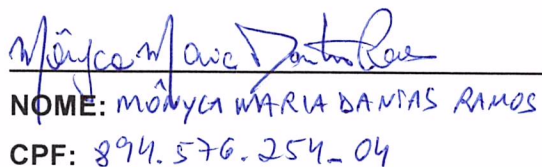 Mônyca Maria Dantas Ramos
NOME: MÔNYCA MARIA DANTAS RAMOS
CPF: 894.576.254-04